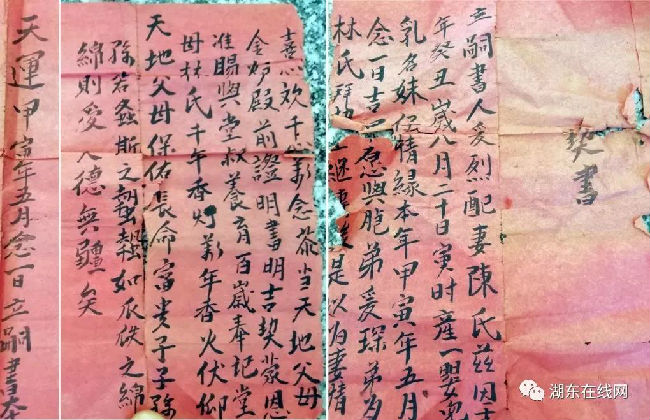 契書
立嗣書人爰烈配妻陳氏茲因
年癸丑歲八月二十日寅时産一嬰
乳名妹伝情緣本年甲寅年五月
念一日吉 愿與胞弟爰琛弟
林氏 継 是以为妻情
喜心欢千 彩念 当天地父母
金炉殿前證明書明吉契蒙恩
准賜與堂叔養育百歲奉祀堂
母林氏千年香灯萬年香火伏仰
天地父母保佑長命富貴子子孫
孫若螽斯之蟄蟄如瓜瓞之綿
綿則爱 德無疆矣
天運甲寅年五月念一日立嗣書
湖东在线网